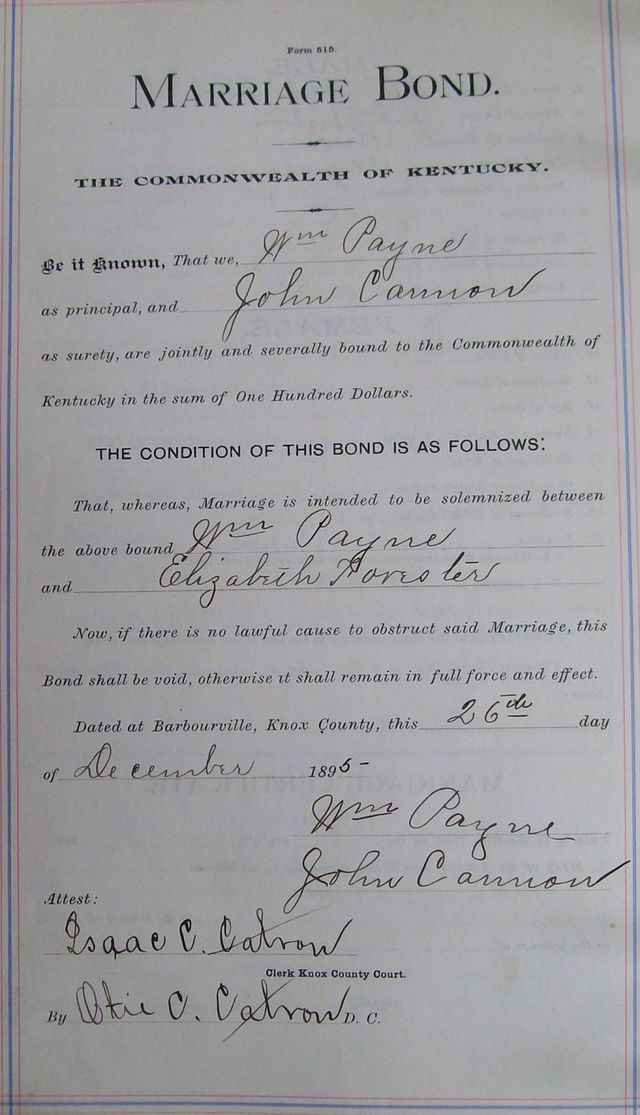 Form 515.
MARRIAGE BOND.
THE COMMONWEALTH OF KENTUCKY.
Be it Known, That we, Wm Payne
as principal, and John Cannon
as surety, are jointly and severally bound to the Commonwealth of
Kentucky in the sum of One Hundred Dollars.
THE CONDITION OF THIS BOND IS AS FOLLOWS:
That, whereas, Marriage is intended to be solemnized between
the above bound Wm Payne
and Elizabeth Forester
Now, if there is no lawful cause to obstruct said Marriage, this
Bond shall be void, otherwise it shall remain in full force and effect.
Dated at Barbourville, Knox County, this 26th day
of December 1895
Wm Payne
John Cannon
Attest:
Isaac C. Catron
Clerk Knox County Court.
By C. Catron D. C.